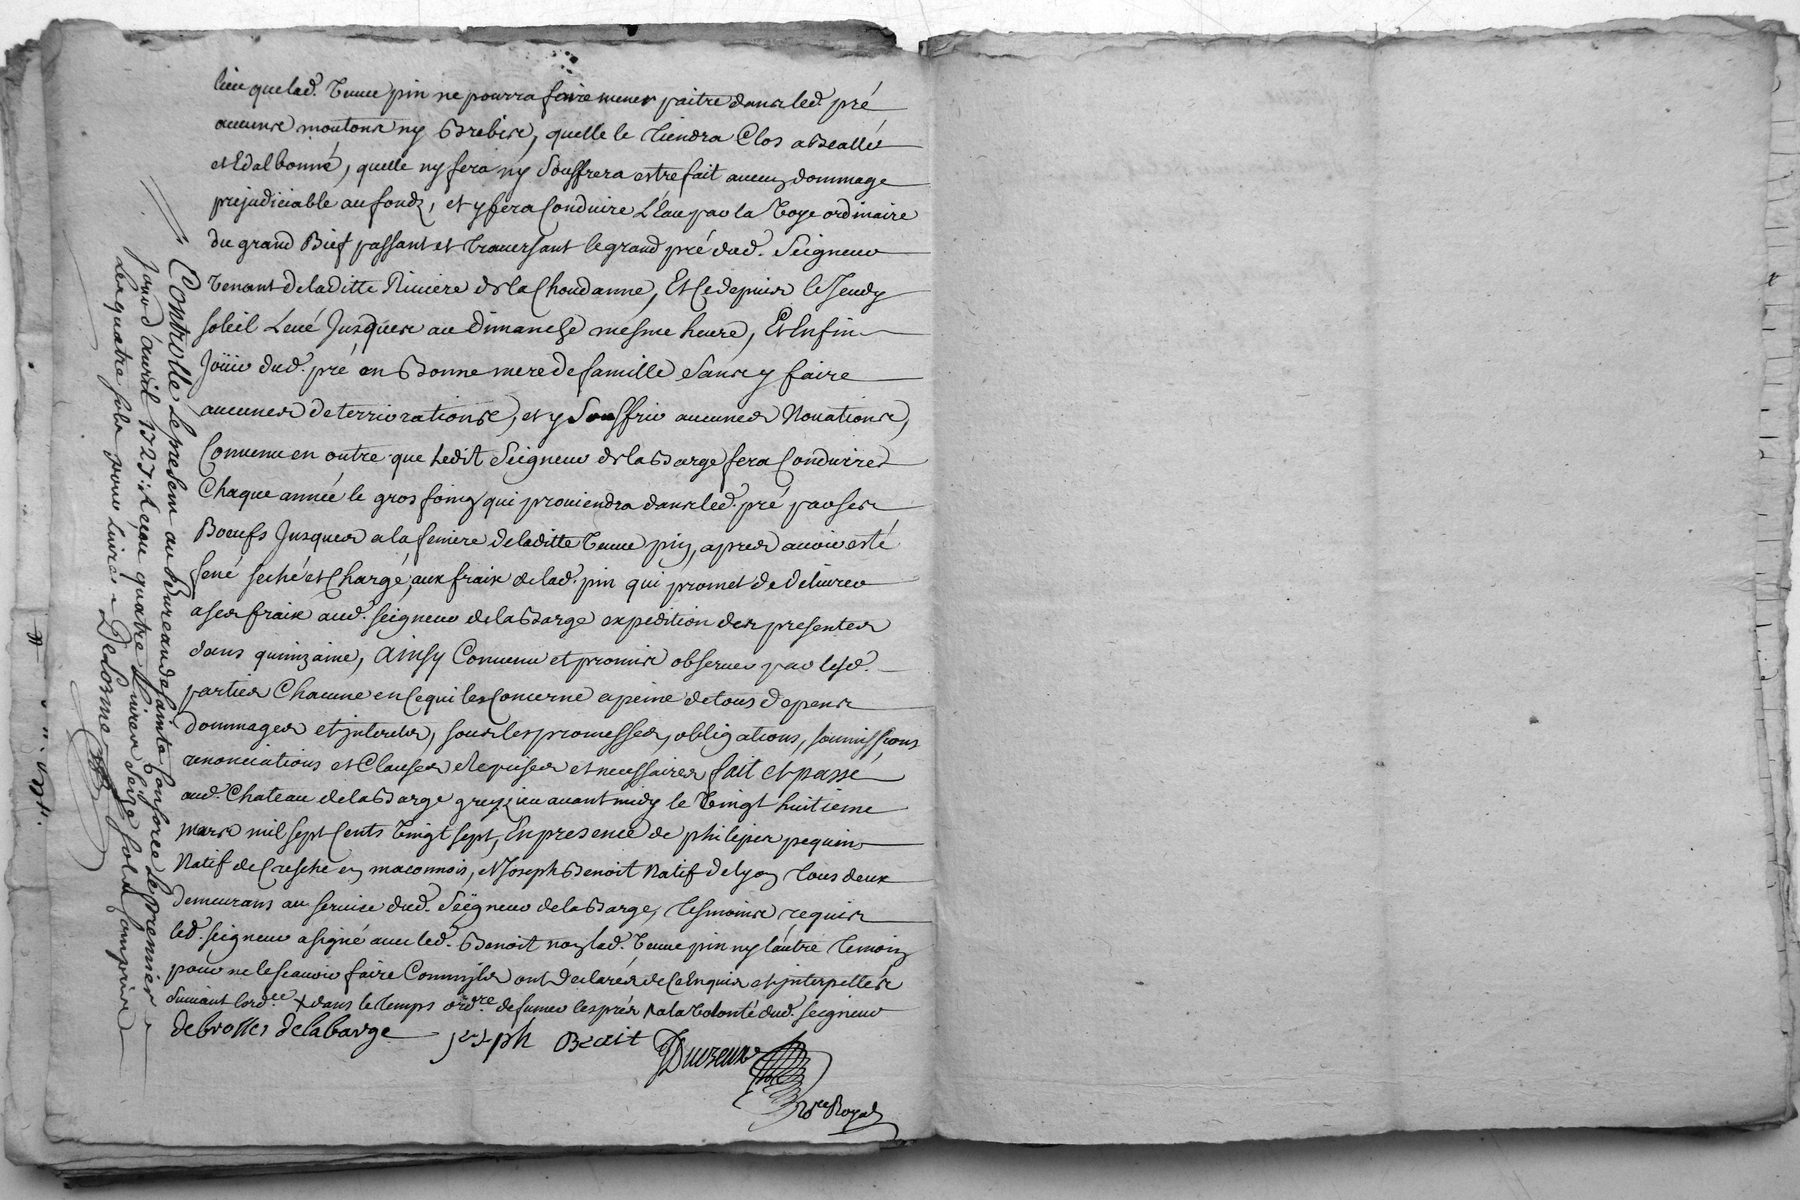 lieu que lad. veuve pin ne pourra faire mener paitre dans led. pré
aucuns moutons ny Brebis, quelle le tiendra Clos
quelle ny fera ny souffrera estre fait aucun dommage
prejudiciable au fondz, et y fera Conduire L'éau par la voye ordinaire
du grand Bief passant et traversant le grand pré dud. Seigneur
venant de laditte Riviere de la Choudanne, Et Ce depuis le Jeudy
soleil Levé Jusques au dimanche mésme heure, Et Enfin
Joüir dud. pré en Bonne mere de famille sans y faire
aucunes deterriorations, et y Souffrir aucunes Novations,
Convenu en outre que Ledit Seigneur de la Barge fera Conduire
Chaque année le gros foing qui proviendra dans led. pré par ses
Boeufs Jusques a la feniere de laditte veuve pin, apres avoir esté
fené seché et Chargé, aux fraix de lad. pin qui promet de delivrer
a ses fraix aud. seigneur de la Barge expedition des presentes
dans quinzaine, Ainsy Convenu et promis observer par lesd.
parties Chacune en Ce qui les Concerne a peine de tous depens
dommages et interets, sous les promesses, obligations, soumissions
renonciations et Clauses requises et necessaires fait et passé
aud. Chateau de la Barge avant midy le vingt huitieme
mars mil sept Cents vingt sept, En presence de philipes pequin
Natif de Cresche en maconnois, et Joseph Benoit Natif de Lyon tous deux
demeurans au service dud. Seigneur de la Barge, tesmoins requis
led. seigneur a signé avec led. Benoit non lad. veuve pin ny l'autre temoin
pour ne le scavoir faire Comm'ils ont declarés de Ce Enquis et interpellés
suivant lord.ce + dans le temps ord.re de fumer les prés a la volonté dud. seigneur
debrosses delabarge
Joseph Benoit
Nre Royal
Controllé le present au Bureau de Sainte Conforce le premier
Jour d'avril 1727: Receu quatre livres seize sols Compris
les quatre sols pour livre. Delorme